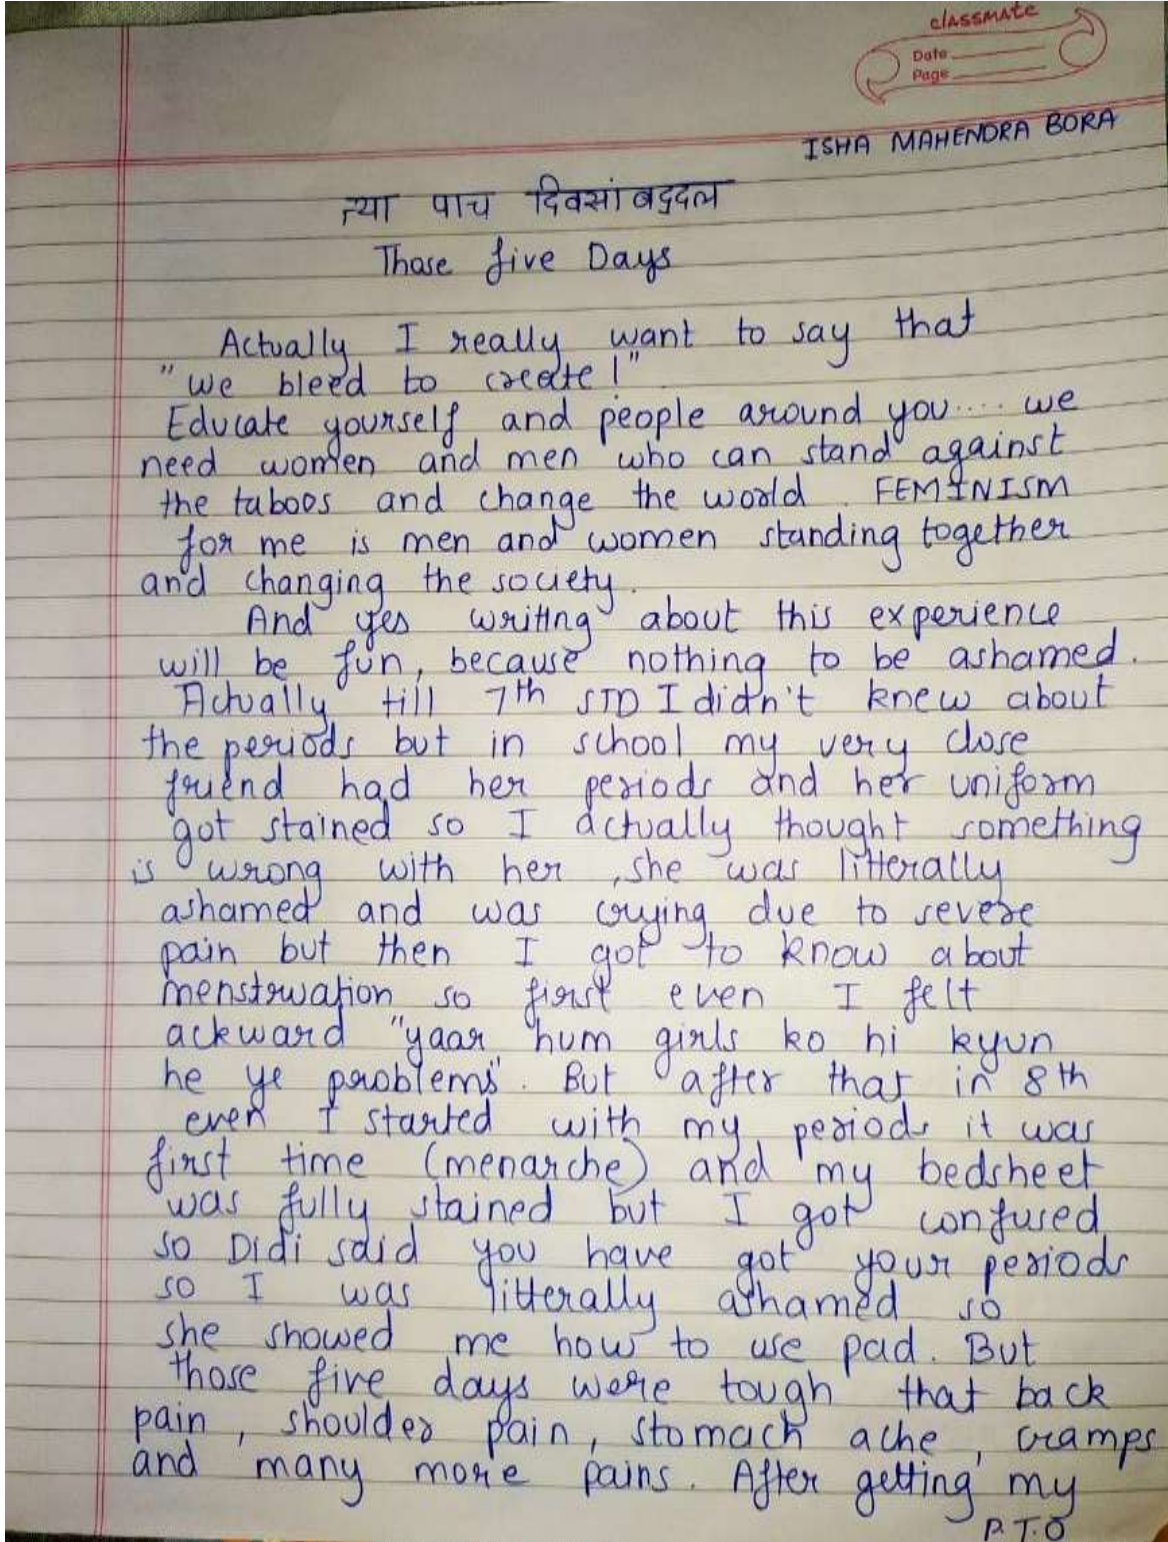 classmate
Date
Page
ISHA MAHENDRA BORA
त्या पाच दिवसांबद्दल
Those five Days
Actually I really want to say that
"we bleed to create!"
Educate yourself and people around you.... we
need women and men who can stand against
the taboos and change the world. FEMINISM
for me is men and women standing together
and changing the society.
And yes writing about this experience
will be fun, because nothing to be ashamed.
Actually till 7th STD I didn't knew about
the periods but in school my very close
friend had her periods and her uniform
got stained so I actually thought something
is wrong with her, she was litterally
ashamed and was crying due to severe
pain but then I got to know about
menstruation so first even I felt
ackward "yaar hum girls ko hi kyun
he ye problems". But after that in 8th
even I started with my periods it was
first time (menarche) and my bedsheet
was fully stained but I got confused
so Didi said you have got your periods
so I was litterally ashamed so
she showed me how to use pad. But
those five days were tough that back
pain, shoulder pain, stomach ache, cramps
and many more pains. After getting my
P.T.O